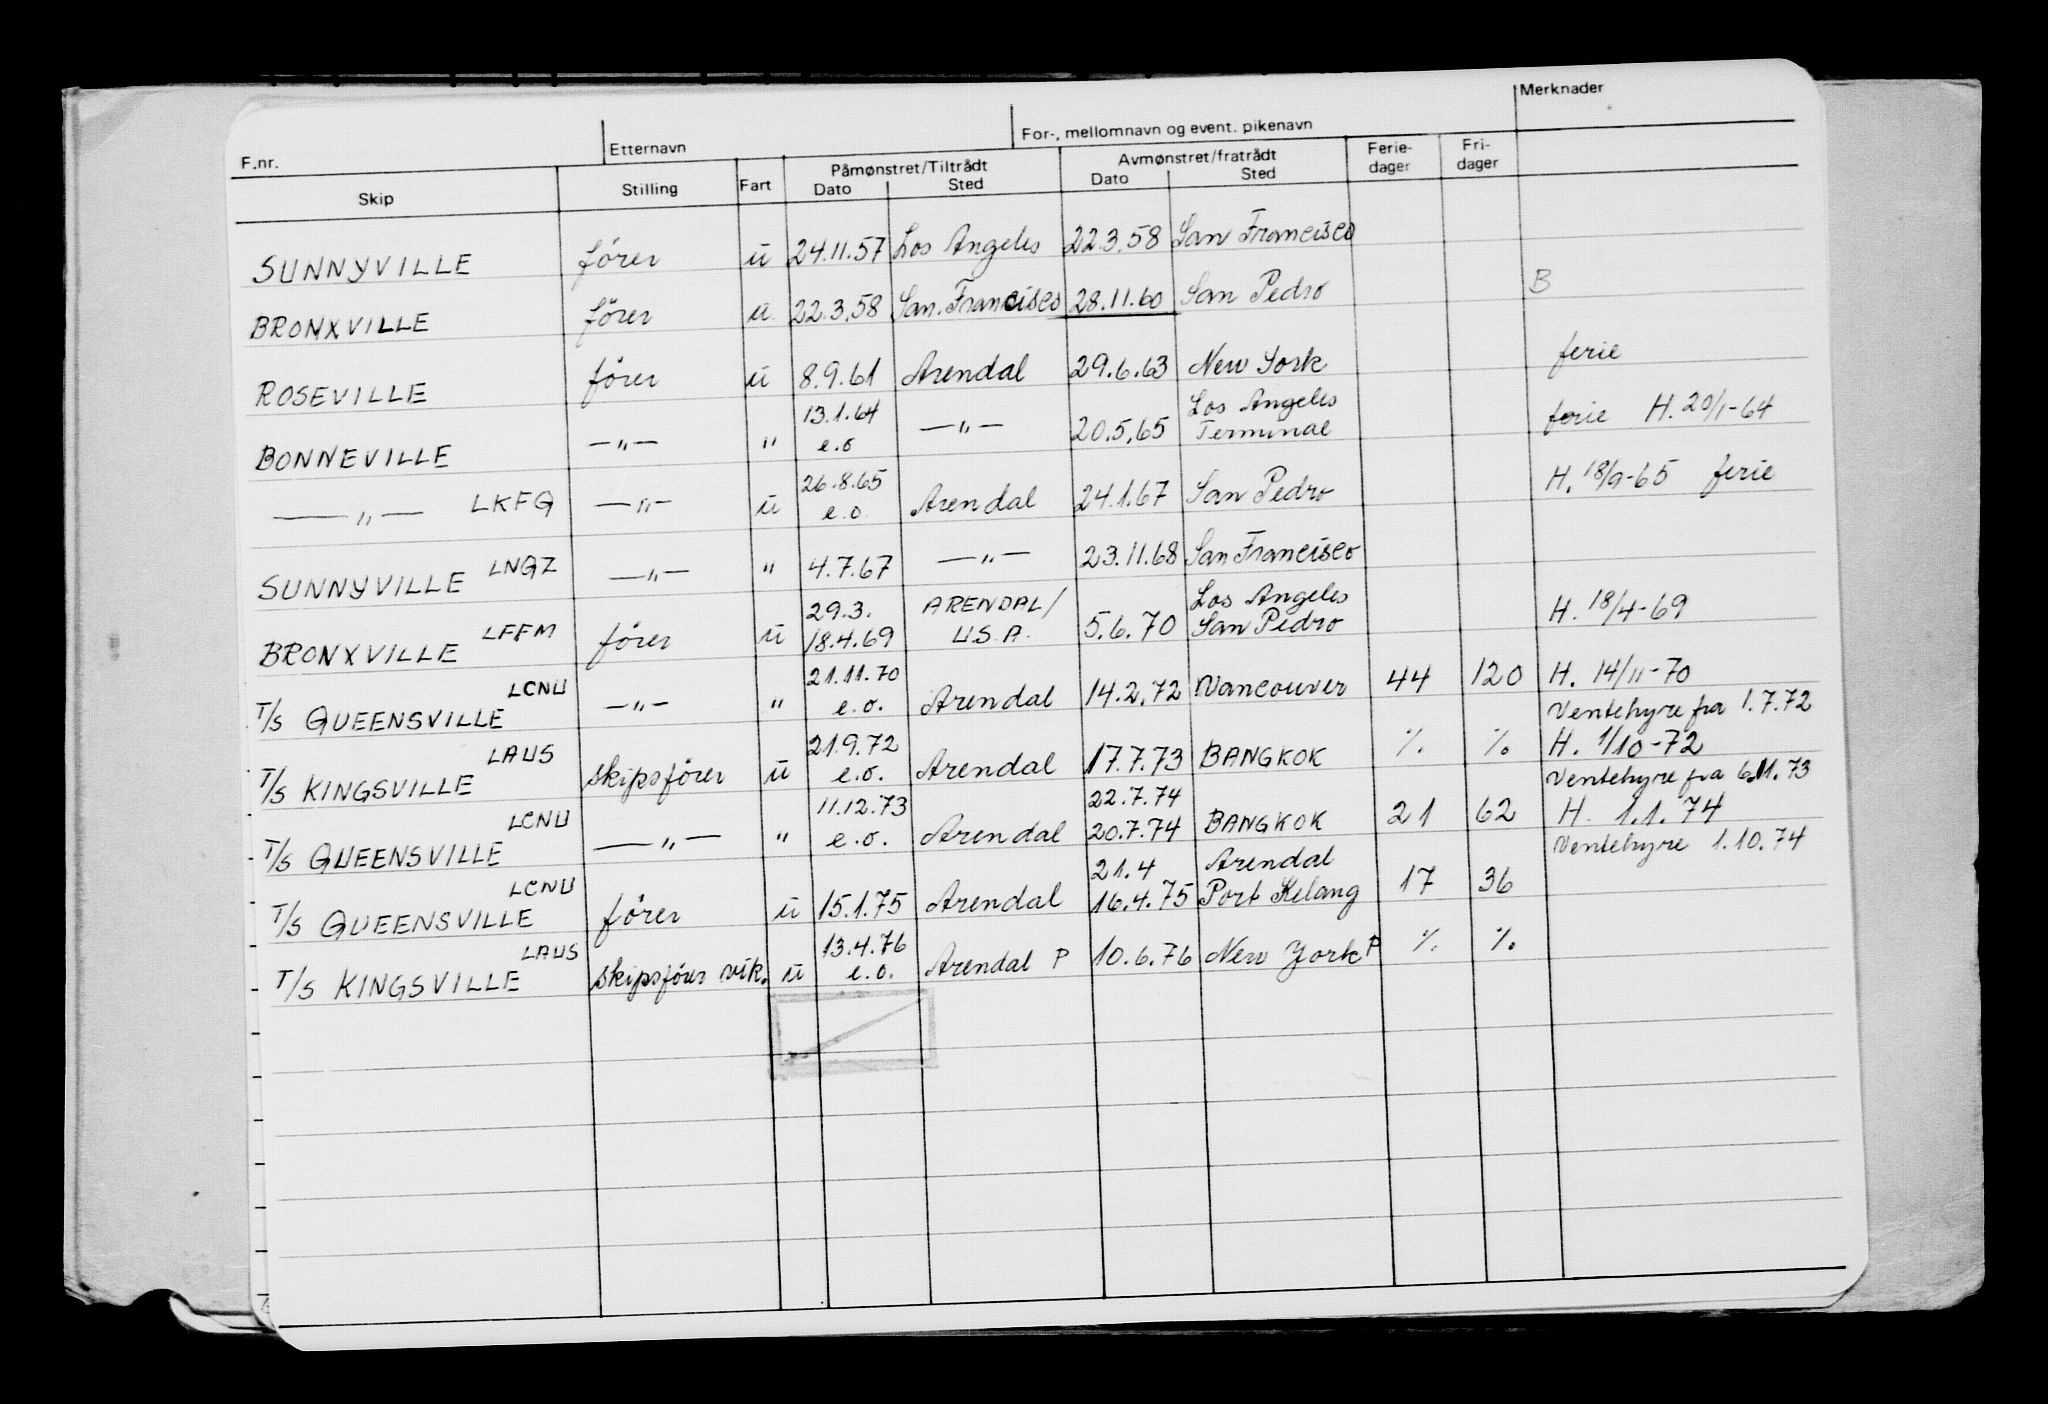 F.nr. Etternavn For-, mellomnavn og event. pikenavn Merknader
Skip Stilling Fart Påmønstret/Tiltrådt Avmønstret/fratrådt Ferie-dager Fri-dager
Dato Sted Dato Sted
SUNNYVILLE fører u 24.11.57 Los Angeles 22.3.58 San Francisco
BRONXVILLE fører u. 22.3.58 San. Francisco 28.11.60 San Pedro B
ROSEVILLE fører u 8.9.61 Arendal 29.6.63 New York ferie
BONNEVILLE —„— " 13.1.64 e.o —„— 20.5.65 Los Angeles Terminal ferie H. 20/1-64
—„— LKFG —„— u 26.8.65 e.o. Arendal 24.1.67 San Pedro H. 18/9-65 ferie
SUNNYVILLE LNGZ —„— " 4.7.67 —„— 23.11.68 San Francisco
BRONXVILLE LFFM fører u 29.3. 18.4.69 ARENDAL/ U.S.A. 5.6.70 Los Angeles San Pedro H. 18/4-69
T/S QUEENSVILLE LCNU —„— " 21.11.70 e.o. Arendal 14.2.72 Vancouver 44 120 H. 14/11-70
Ventehyre fra 1.7.72
T/S KINGSVILLE LAUS skipsfører u 21.9.72 e.o. Arendal 17.7.73 BANGKOK ٪ ٪ H. 1/10-72
Ventehyre fra 6.11.73
T/S QUEENSVILLE LCNU —„— " 11.12.73 e.o. Arendal 22.7.74 20.7.74 BANGKOK 21 62 H. 1.1.74
Ventehyre 1.10.74
T/S QUEENSVILLE LCNU fører u 15.1.75 Arendal 21.4 16.4.75 Arendal Port Kelang 17 36
T/S KINGSVILLE LAUS skipsfører vik. u 13.4.76 e.o. Arendal P 10.6.76 New York P ٪ ٪